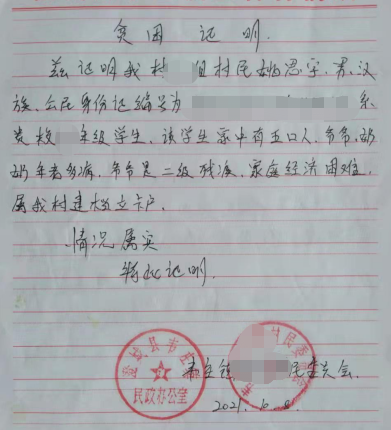 贫困证明.
兹证明我村 组村民姚思宇,男,汉
族,公民身份证编号为 系
贵校 年级学生,该学生家中有五口人,爷爷,奶
奶年老多病,爷爷是二级残疾,家庭经济困难,
属我村建档立卡户。
情况属实
特此证明.
民政办公室
民委员会.
2021.